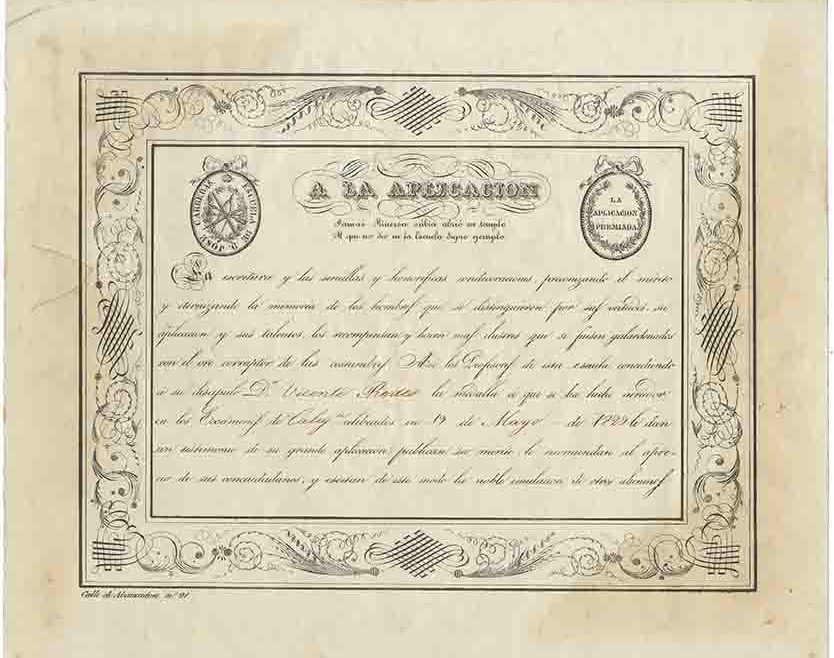 A LA APLICACION
Jamas Minerva sábia abrió su templo
Al que no dió en la Escuela digno egemplo
ESCUELA DE D. JOSÉ CARRERAS
LA
APLICACION
PREMIADA.
La escritura y las sencillas y honorificas condecoraciones, preconizando el mérito
y eternizando la memoria de los hombres que se distinguieron por sus virtudes, su
aplicacion y sus talentos, los recompensan y hacen mas ilustres que si fuesen galardonados
con el oro corruptor de las costumbres. Asi los Profesores de esta escuela concediendo
á su discipulo Dn. Vicente Rodes la medalla á que se ha hecho acreedor
en los Exámenes de celebrados en 19 de Mayo de 1829 le dan
un testimonio de su grande aplicacion, publican su mérito, le recomiendan al apre-
cio de sus conciudadanos, y escitan de este modo la noble emulacion de otros alumnos
Calle de nº 91.